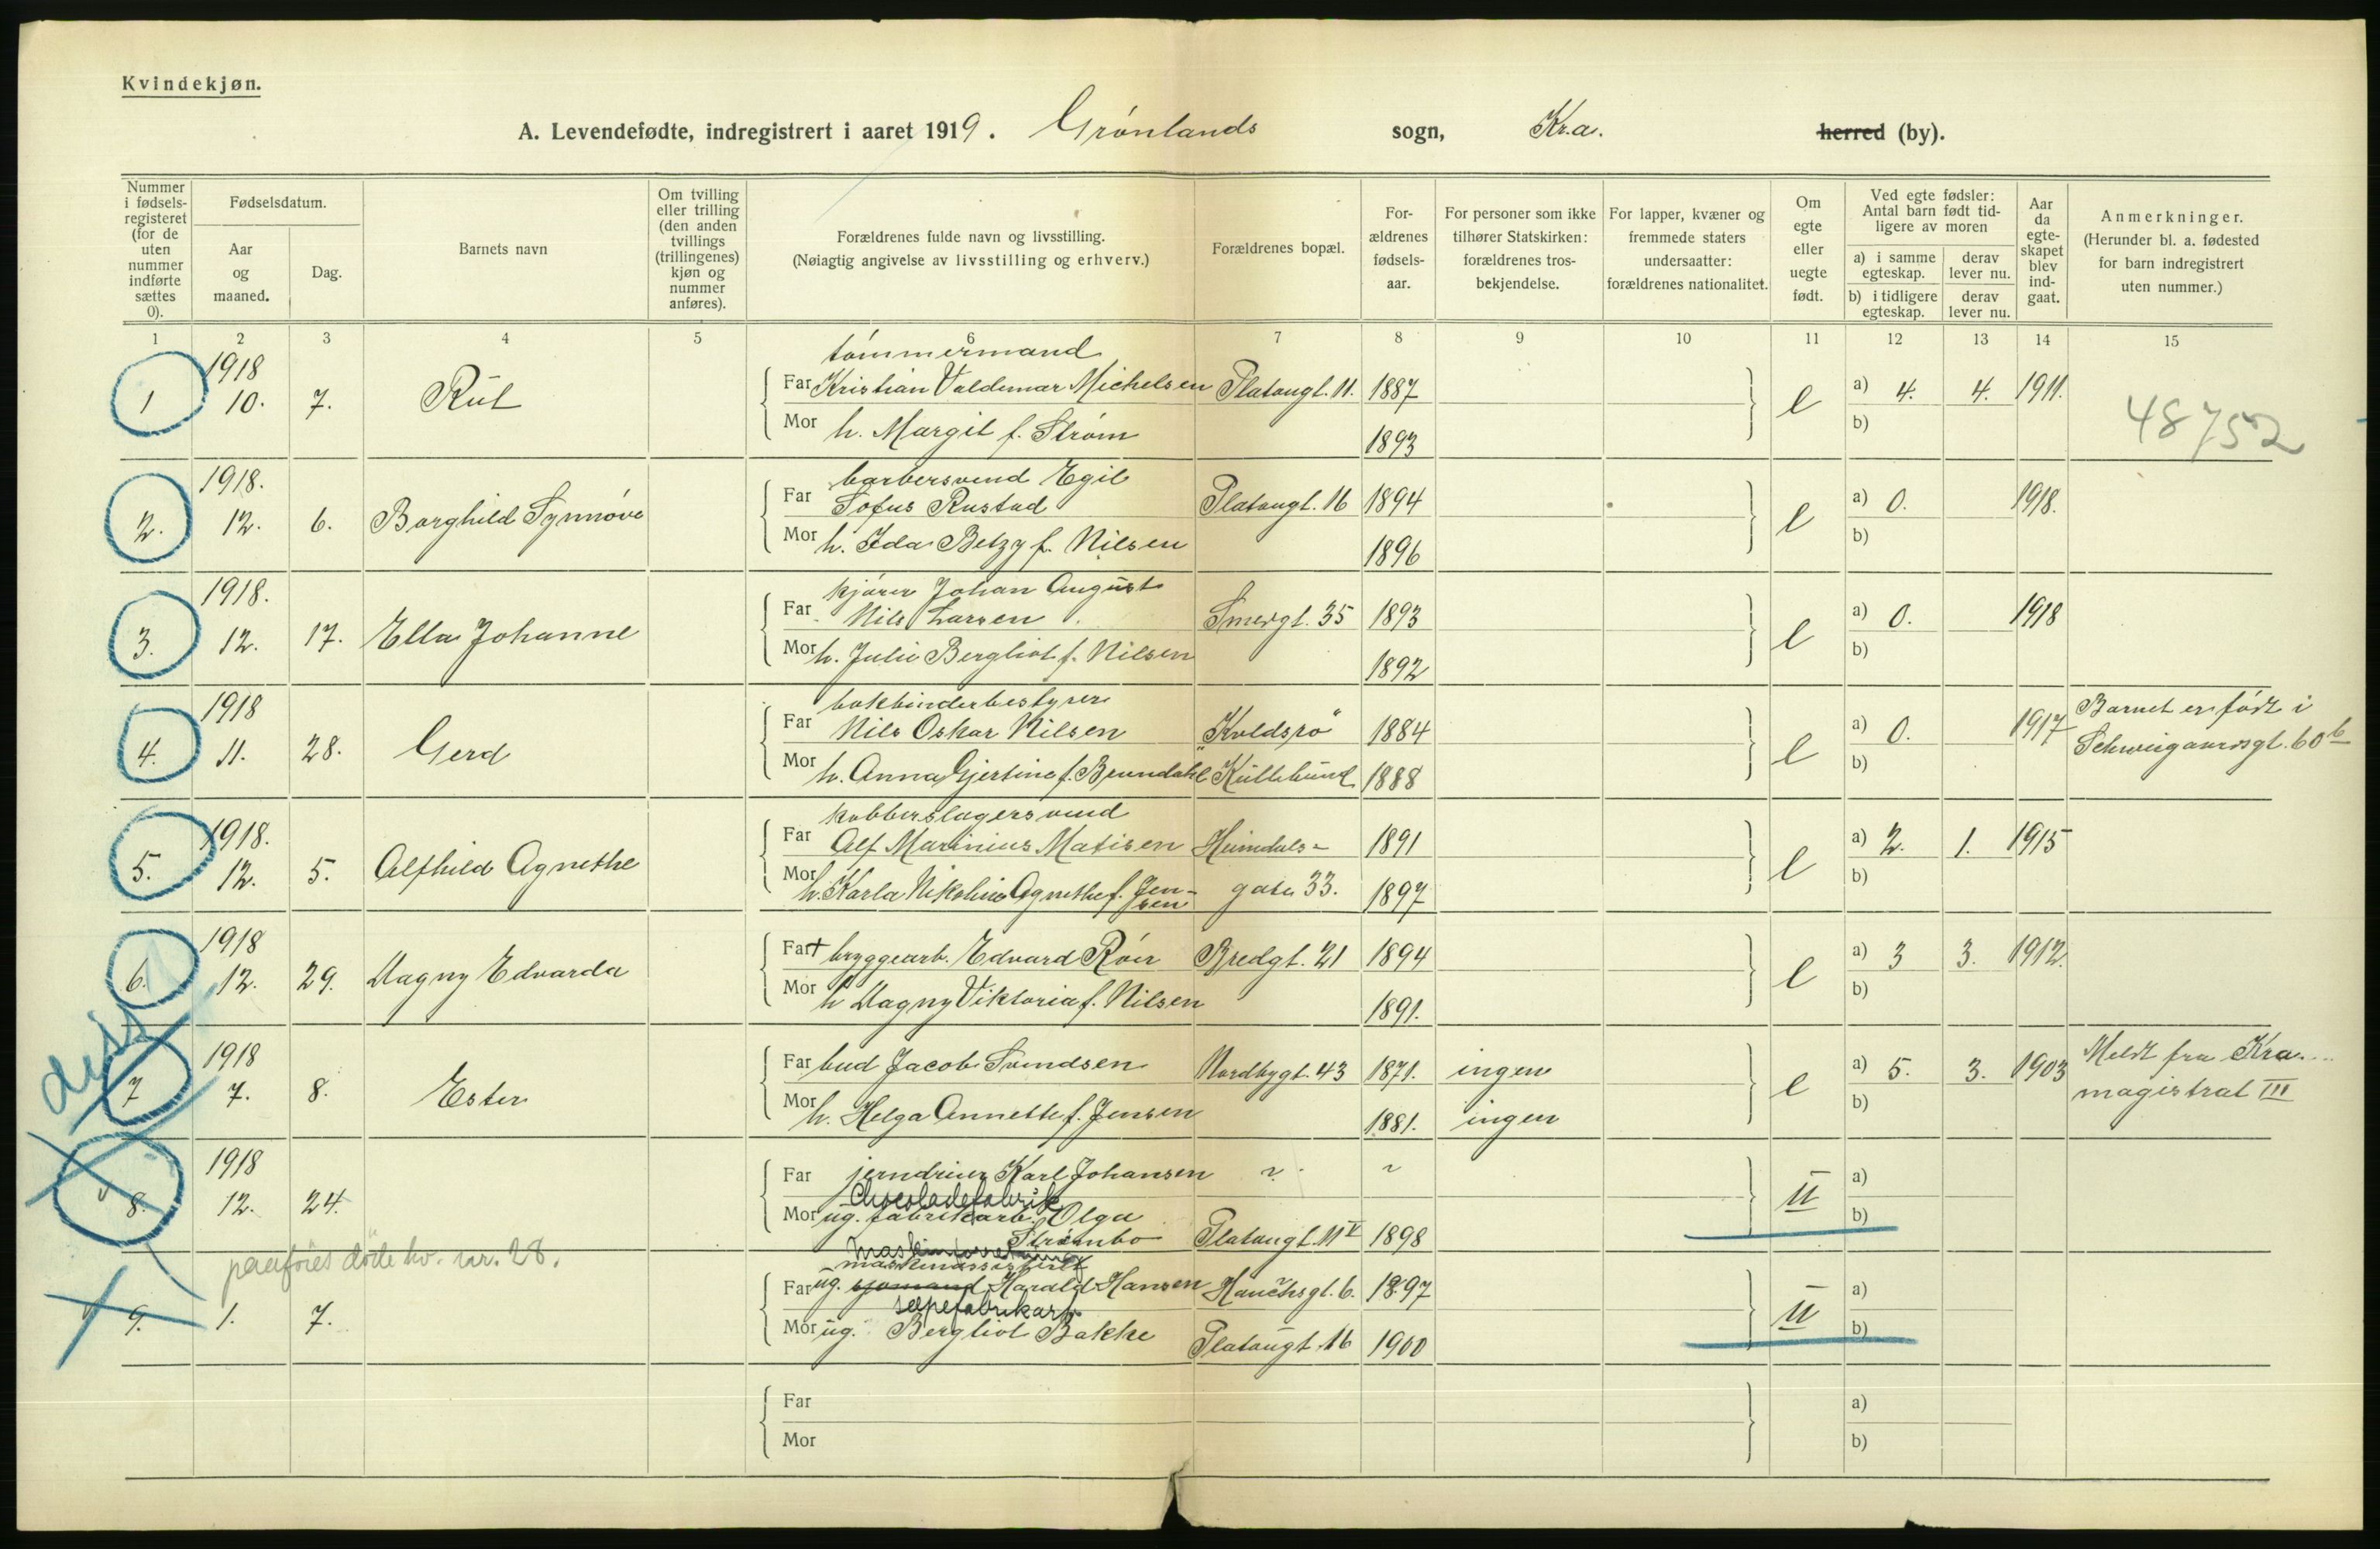 Kvindekjøn.
A. Levendefødte, indregistrert i aaret 1919. Grønlands sogn, Kr.a. herred (by).
Nummer i fødsels-registeret (for de uten nummer indførte sættes 0).
Fødselsdatum.
Aar og maaned.
Dag.
Barnets navn
Om tvilling eller trilling (den anden tvillings (trillingenes) kjøn og nummer anføres).
Forældrenes fulde navn og livsstilling.
(Nøiagtig angivelse av livsstilling og erhverv.)
Forældrenes bopæl.
For-ældrenes fødsels-aar.
For personer som ikke tilhører Statskirken: forældrenes tros-bekjendelse.
For lapper, kvæner og fremmede staters undersaatter: forældrenes nationalitet.
Om egte eller uegte født.
Ved egte fødsler: Antal barn født tid-ligere av moren
a) i samme egteskap.
derav lever nu.
b) i tidligere egteskap.
derav lever nu.
Aar da egte-skapet blev ind-gaat.
Anmerkninger.
(Herunder bl. a. fødested for barn indregistrert uten nummer.)
1 2 3 4 5 6 7 8 9 10 11 12 13 14 15
1918 tømmermand
1 10. 7. Rut Far Kristian Valdemar Michelsen Platougt. 11. 1887 e a) 4. 4. 1911.
Mor h. Margit f. Strøm 1893 b)
48752
1918. barbersvend Egil
2. 12. 6. Borghild Synnøve Far Sofus Rustad Platougt. 16 1894 e a) 0. 1918.
Mor h. Ida Betzy f. Nilsen 1896 b)
1918. kjører Johan August
3. 12. 17. Ella Johanne Far Nils Larsen Smedgt. 35 1893 e a) 0. 1918
Mor h. Julie Bergliot f. Nilsen 1892 b)
1918 bokbinderbestyrer
4. 11. 28. Gerd Far Nils Oskar Nilsen "Kveldsro" 1884 e a) 0. 1917 Barnet er født i
Mor h. Anna Gjertine f. Brundahl 1888 b) Schweigaardsgt. 60 b
1918. kobberslagersvend
5. 12. 5. Alfhild Agnethe Far Alf Marinius Matisen Heimdals- 1891 e a) 2. 1. 1915
Mor h. Karla Nikoline Agnethe f. Jensen gata 33. 1897 b)
1918
6. 12. 29. Dagny Edvarda Far + bryggearb. Edvard Røir Bredgt. 21 1894 e a) 3 3. 1912.
Mor h Dagny Viktoria f. Nilsen 1891. b)
diss
1918
7 7. 8. Ester Far bud Jacob Svendsen Nordbygt. 43 1871. ingen e a) 5. 3. 1903 Meldt fra Kra.
Mor h. Helga Annette f. Jensen 1881. ingen b) magistrat III
1918
8. 12. 24. Far jerndreier Karl Johansen ? ? u a)
Chocoladefabrik
Mor ug. fabrikarb. Olga b)
Strømbo Platougt. 11 V 1898
paaføres døde kv. nr. 28.
maskinassistent
9. 1. 7. Far ug. sjømand Harald Hansen Hauchsgt. 6. 1897 u a)
sæpefabrikarb.
Mor ug. Bergliot Bakke Platougt. 16 1900 b)
Far a)
Mor b)